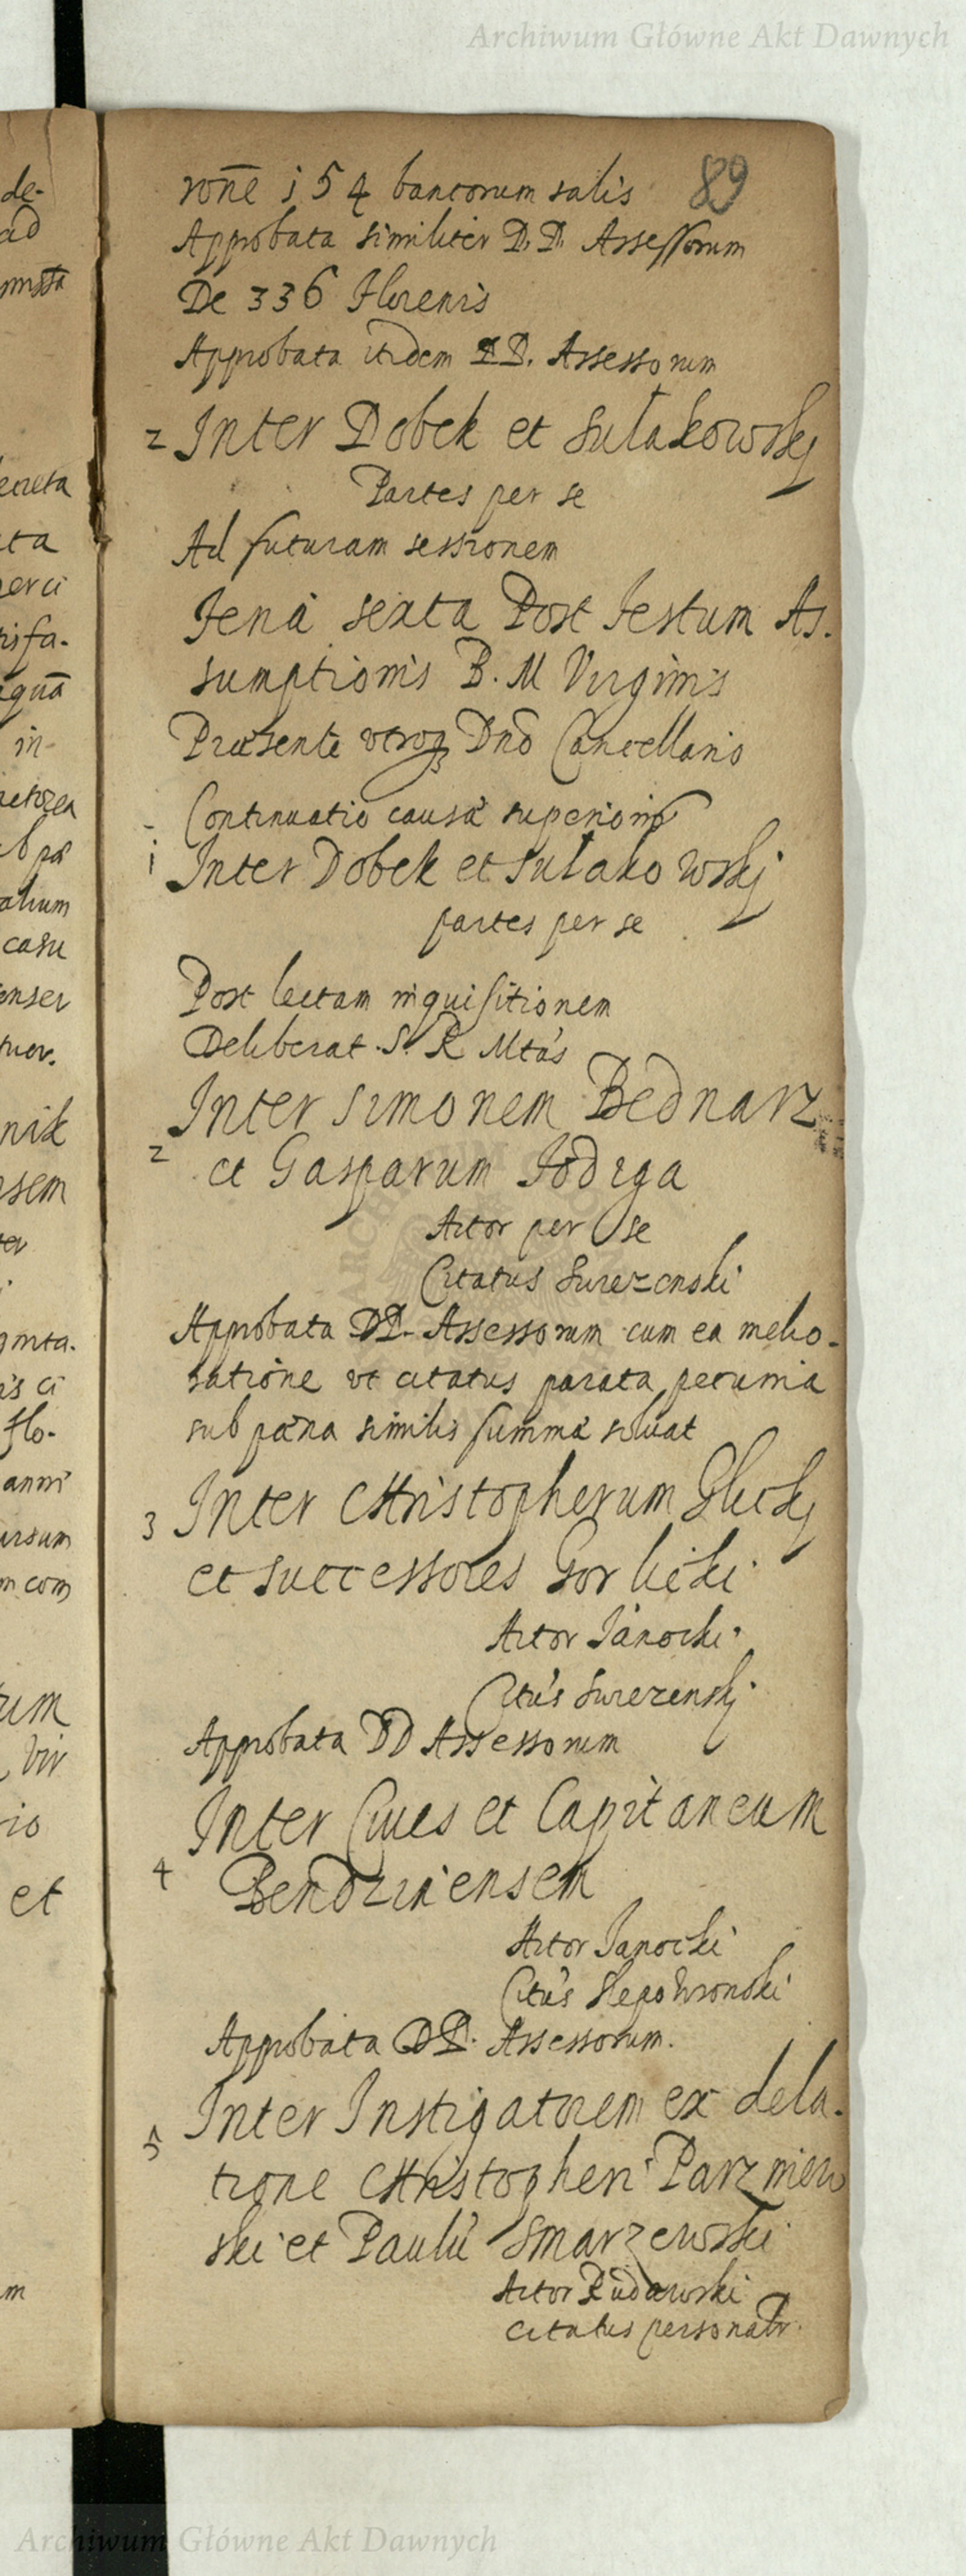 Archiwum Główne Akt Dawnych
89
rone 154 bancorum salis
Approbata similiter D. D. Assessorum
De 336 Florenis
Approbata itidem DD. Assessorum
2 Inter Dobek et Sułakowskj
Partes per se
Ad futuram sessionem
Feria sexta Post festum As.
sumptionis B. M Virginis
Præsente utroq Dno Cancellario
Continuatio causæ superioris
1 Inter Dobek et Sułakowskj
partes per se
Post lectam inquisitionem
Deliberat. S. R Mtas
Inter Simonem Bednarz
2 et Gasparum Fodiga
Actor per se
Citatus Surezenski
Approbata DD. Assessorum cum ea melio-
ratione ut citatus parata pecunia
sub pœna similis summæ soluat
3 Inter CHristopherum Gluchj
et successores Gorlicki
Actor Janocki
Citus Surezenskj
Approbata DD Assessorum
Inter Ciues et Capitaneum
4 Bendzinensem
Actor Janocki
Citus Slepowronski
Approbata DD. Assessorum.
Inter Instigatorem ex dela-
5 tione CHristopheri Parzniew
ski et Pauli Smarzewski
Actor Rudawski
citatus personatr.
de-
ad
ecreta
ta
tisfa-
in
alium
casu
tuor.
nik
sem
flo-
anni
ursum
um
vir
rio
et
m
Archiwum Główne Akt Dawnych